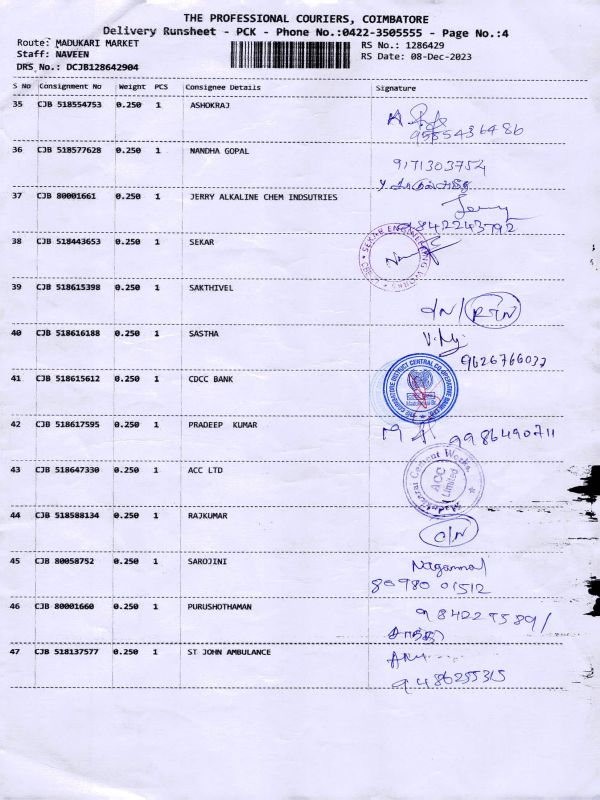 THE PROFESSIONAL COURIERS, COIMBATORE
Delivery Runsheet - PCK - Phone No.:0422-3505555 - Page No.:4
Route: MADUKARI MARKET
RS No.: 1286429
Staff: NAVEEN
RS Date: 08-Dec-2023
DRS No.: DCJB128642904
S No Consignment No Weight PCS Consignee Details Signature
35 CJB 518554753 0.250 1 ASHOKRAJ
9555436486
36 CJB 518577628 0.250 1 NANDHA GOPAL
9171303754
37 CJB 80001661 0.250 1 JERRY ALKALINE CHEM INDSUTRIES
Jerry
9842243792
38 CJB 518443653 0.250 1 SEKAR
SEKAR ENGINEERING WORKS
39 CJB 518615398 0.250 1 SAKTHIVEL
D/N/ RTN
40 CJB 518616188 0.250 1 SASTHA
9626766032
41 CJB 518615612 0.250 1 CDCC BANK
THE COIMBATORE DISTRICT CENTRAL CO-OPERATIVE BANK
42 CJB 518617595 0.250 1 PRADEEP KUMAR
9986490711
43 CJB 518647330 0.250 1 ACC LTD
Madukkarai Cement Works
ACC Limited
44 CJB 518588134 0.250 1 RAJKUMAR
C/N
45 CJB 80058752 0.250 1 SAROJINI
Nagammal
80980 01512
46 CJB 80001660 0.250 1 PURUSHOTHAMAN
47 CJB 518137577 0.250 1 ST JOHN AMBULANCE
9486255315